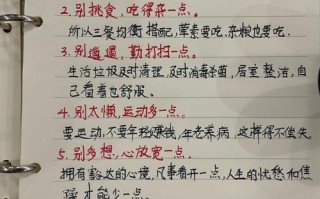 2.别挑食,吃得杂一点。
所以三餐均衡搭配,荤素要吃,杂粮也要吃。
3.别邋遢,勤打扫一点。
生活垃圾及时清理,及时消毒杀菌,居室整洁,自
己看着也舒服。
4.别太懒,运动多一点。
要运动,不要年轻赚钱,年老养病,这样得不偿失
5.别多想,心放宽一点。
拥有豁达的心境,凡事看开一点,人生的忧愁和焦
躁才能少一点。